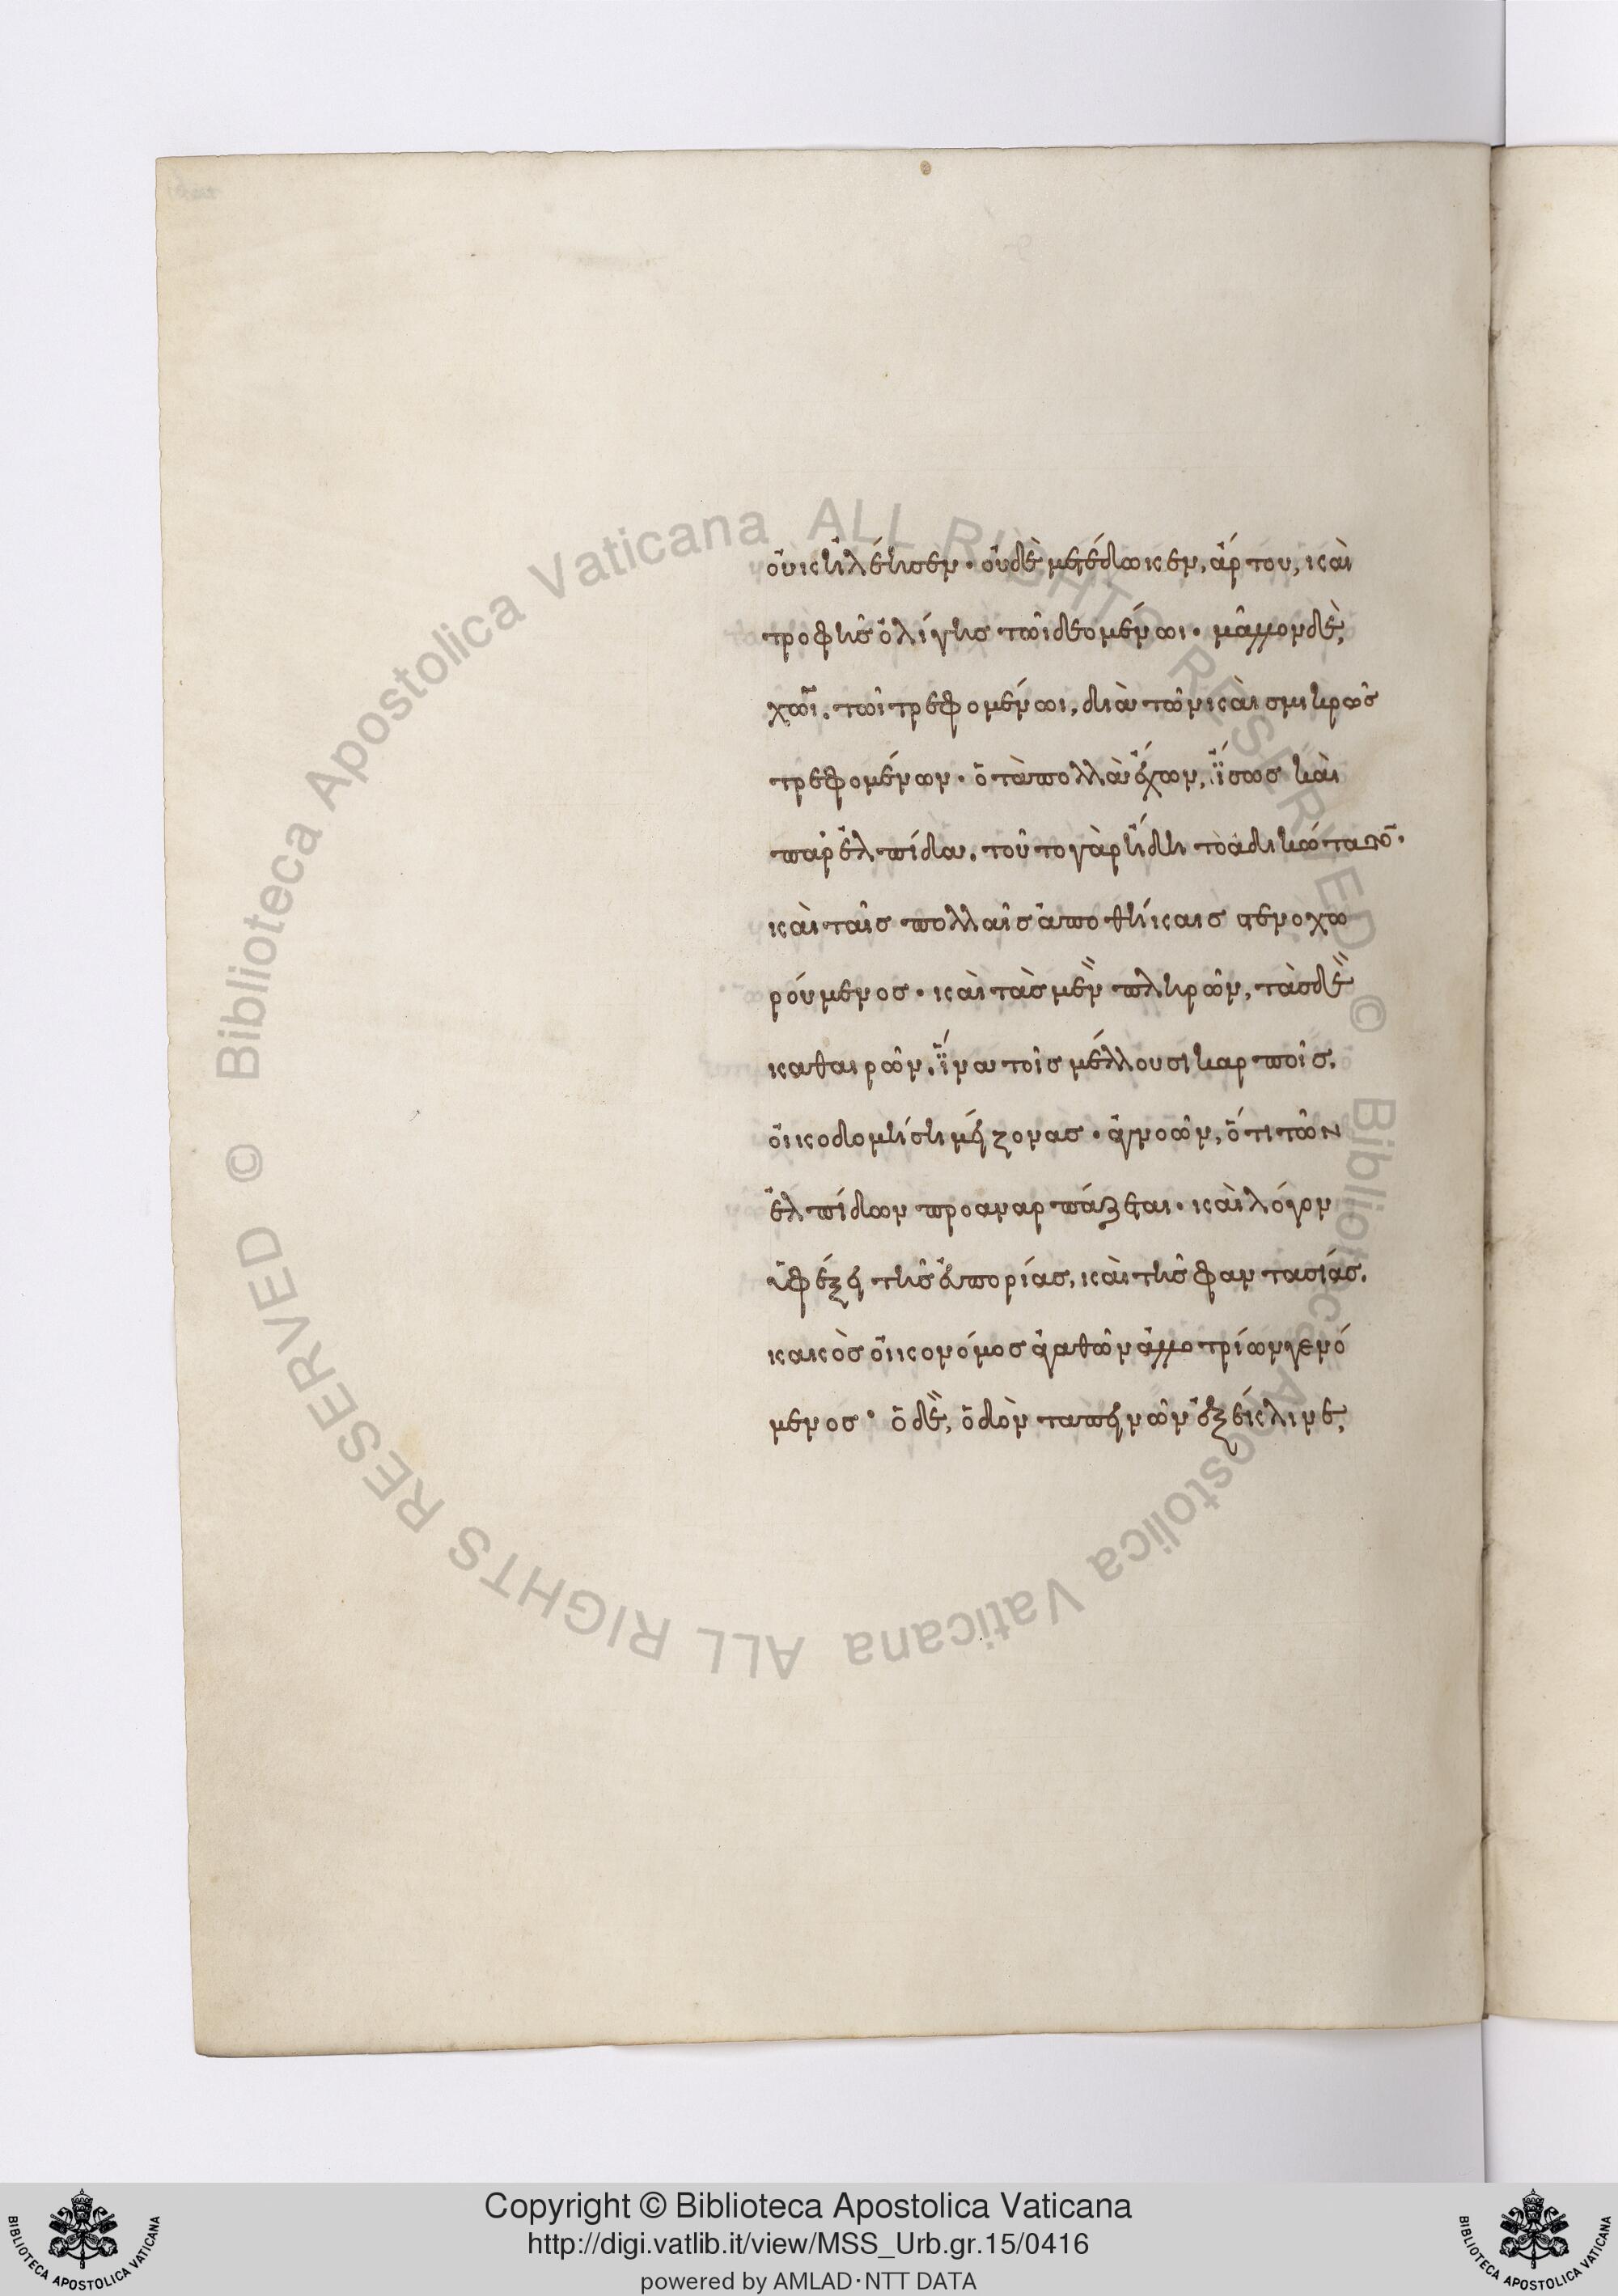 οὐκ ἠλέησεν· οὐδὲ μετέδωκεν, ἄρτου, καὶ
τροφῆς ὀλίγης τῶι δεομένωι· μᾶλλον δὲ,
χῶι. τῶι τρεφομένωι, διὰ τῶν καὶ σμικρῶς
τρεφομένων· ὁ τὰ πολλὰ ἔχων, ἴσως καὶ
παρ' ἐλπίδα. τοῦτο γὰρ ἤδη τὸ ἀδικώτατον·
καὶ ταῖς πολλαῖς ἀποθήκαις στενοχω
ρούμενος· καὶ τὰς μὲν πληρῶν, τὰς δὲ
καθαιρῶν, ἵνα τοῖς μέλλουσι καρποῖς.
οἰκοδομήσῃ μείζονας· ἀγνοῶν, ὅτι τῶν
ἐλπίδων προαναρπάζεται· καὶ λόγον
ὑφέξει τῆς εὐπορίας, καὶ τῆς φαντασίας.
κακὸς οἰκονόμος ἀγαθῶν ἀλλοτρίων γενό
μενος· ὁ δὲ, ὁδὸν ταπεινῶν ἐξέκλινε,
Copyright © Biblioteca Apostolica Vaticana
http://digi.vatlib.it/view/MSS_Urb.gr.15/0416
powered by AMLAD·NTT DATA
BIBLIOTECA APOSTOLICA VATICANA
BIBLIOTECA APOSTOLICA VATICANA
© Biblioteca Apostolica Vaticana ALL RIGHTS RESERVED
© Biblioteca Apostolica Vaticana ALL RIGHTS RESERVED